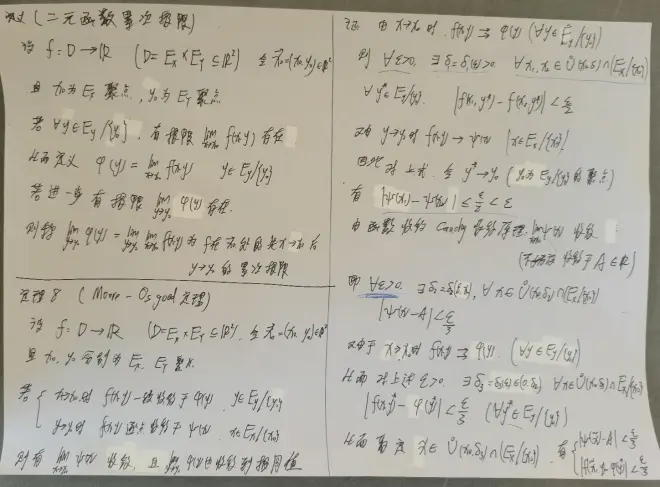 定义 (二元函数累次极限)
设 f = D → ℝ (D = E_X × E_Y ⊆ ℝ²) 令 x₀ = (x₀, y₀) ∈ ℝ²
且 x₀ 为 E_X 聚点, y₀ 为 E_Y 聚点
若 ∀y ∈ E_Y/{y₀}, 有极限 lim_{x→x₀} f(x,y) 存在
从而定义 φ(y) = lim_{x→x₀} f(x,y) y ∈ E_Y/{y₀}
若进一步有极限 lim_{y→y₀} φ(y) 存在.
则称 lim_{y→y₀} φ(y) = lim_{y→y₀} lim_{x→x₀} f(x,y) 为 f 在 x₀ 处的先 x→x₀ 后
y→y₀ 的累次极限
定理 8 (Moore - Osgood 定理)
设 f = D → ℝ (D = E_X × E_Y ⊆ ℝ²), 令 x₀ = (x₀, y₀) ∈ ℝ²
且 x₀, y₀ 分别为 E_X, E_Y 聚点.
若 { x→x₀ 时 f(x,y) 一致收敛于 φ(y) y ∈ E_Y/{y₀}
y→y₀ 时 f(x,y) 逐点收敛于 ψ(x) x ∈ E_X/{x₀}
则有 lim_{x→x₀} ψ(x) 收敛, 且 lim_{y→y₀} φ(y) 也收敛到相同值
证 由 x→x₀ 时 f(x,y) ⇉ φ(y) (∀y ∈ E_Y/{y₀})
则 ∀ε>0, ∃ δ = δ(ε) ∀x₁, x₂ ∈ Ů(x₀,δ) ∩ [E_X/{x₀}]
∀y* ∈ E_Y/{y₀}. |f(x₁,y*) - f(x₂,y*)| < ε/2
又由 y→y₀ 时 f(x,y) → ψ(x) [x ∈ E_X/{x₀}]
因此 对上式, 令 y*→y₀ (y₀ 为 E_Y/{y₀} 的聚点)
有 |ψ(x₁) - ψ(x₂)| ≤ ε/2 < ε
由函数收敛 Cauchy 收敛原理: lim_{x→x₀} ψ(x) 收敛
收敛于 A ∈ ℝ)
即 ∀ε>0, ∃ δ₁ = δ₁(ε), ∀x ∈ Ů(x₀,δ₁) ∩ [E_X/{x₀}]
|ψ(x) - A| < ε/3
又由于 x→x₀ 时 f(x,y) ⇉ φ(y). (∀y ∈ E_Y/{y₀})
从而 对上述 ε>0, ∃ δ₂ = δ₂(ε) ∈ (0,δ₁) ∀x ∈ Ů(x₀,δ₂) ∩ [E_X/{x₀}]
|f(x,y*) - φ(y*)| < ε/3 (∀y* ∈ E_Y/{y₀})
从而 x ∈ Ů(x₀,δ₂) ∩ [E_X/{x₀}], 有 { |ψ(x) - A| < ε/3